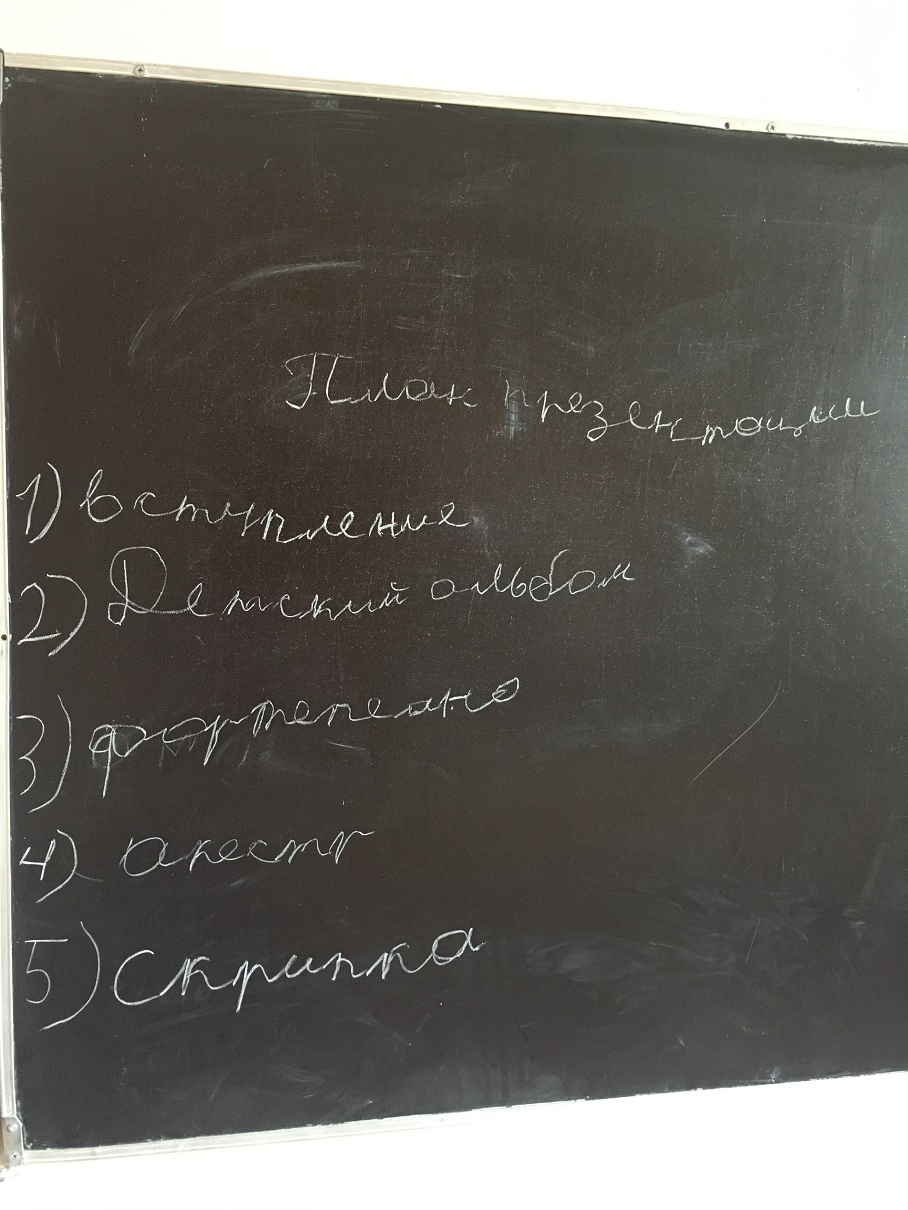 План презентации
1) вступление
2) Детский альбом
3) фортепеано
4) окестр
5) Скрипка